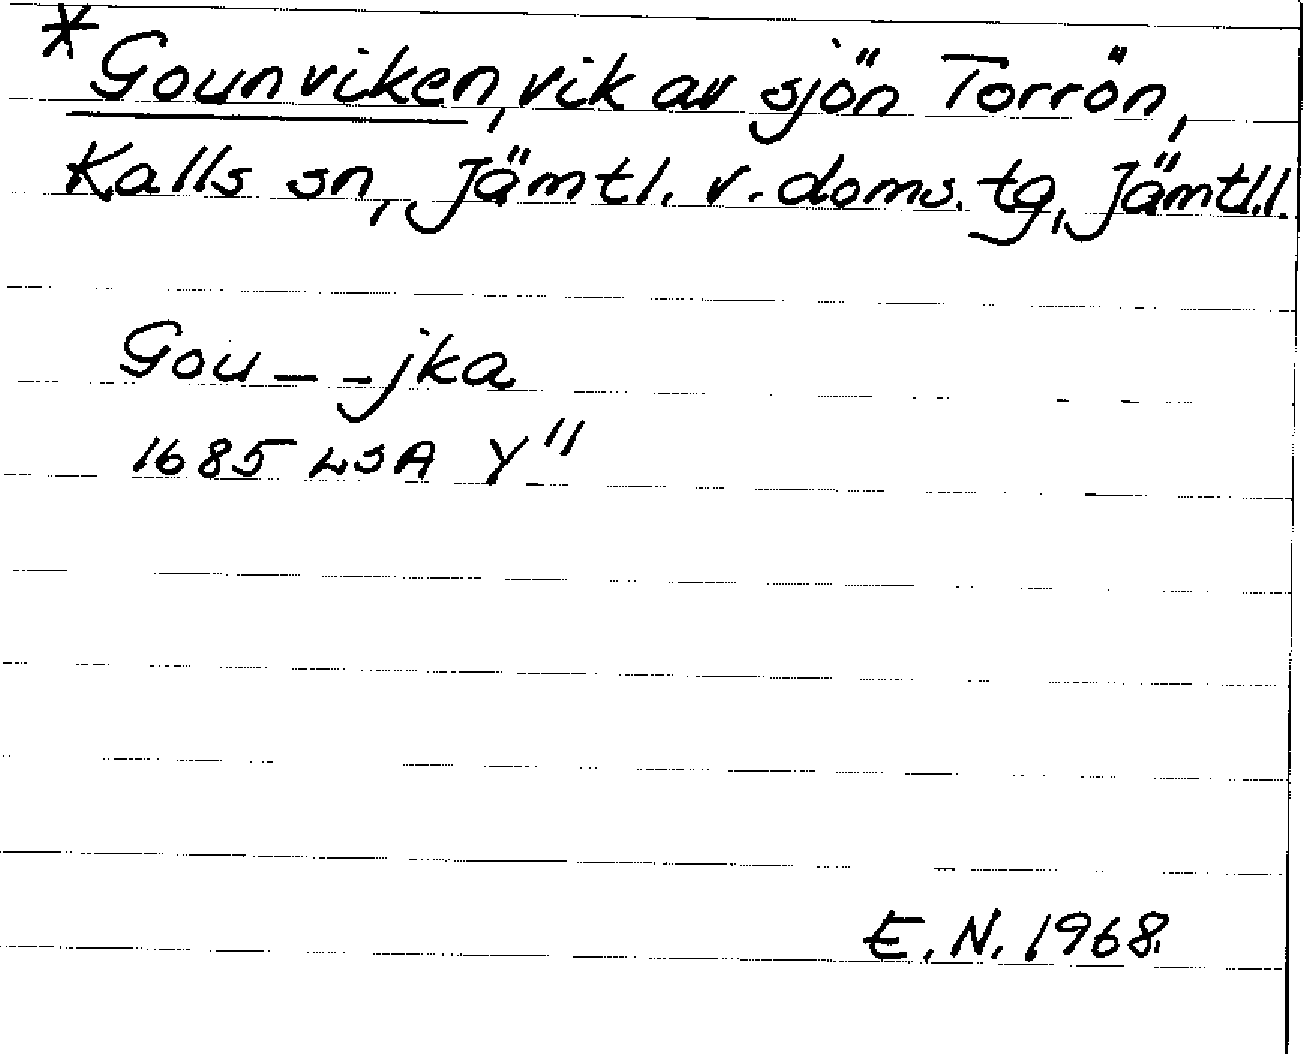 *Gounviken, vik av sjön Torrön,
Kalls sn, Jämtl. v. doms. tg, Jämtl.l.
Gou_ _jka
1685 LSA Y"
E.N. 1968.